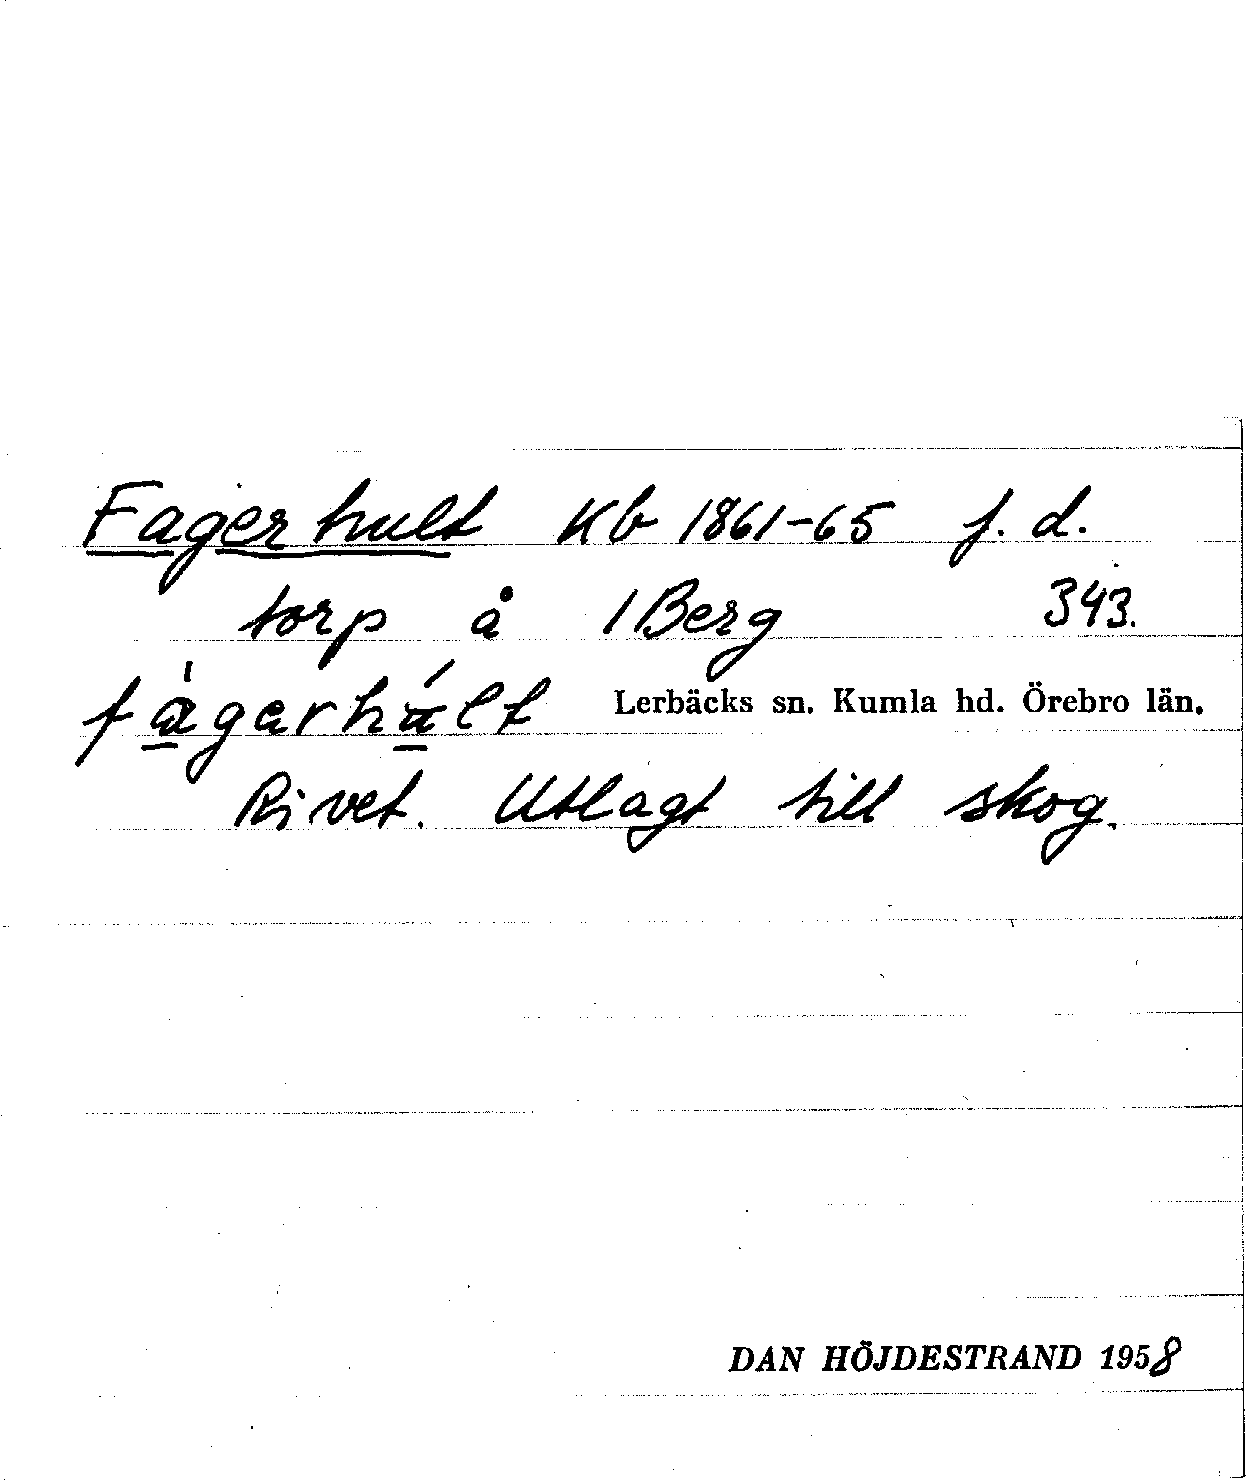 Fagerhult Kb 1861-65 f. d.
torp å 1 Berg 343.
fàgerhúlt Lerbäcks sn. Kumla hd. Örebro län.
Rivet. Utlagt till skog.
DAN HÖJDESTRAND 1958